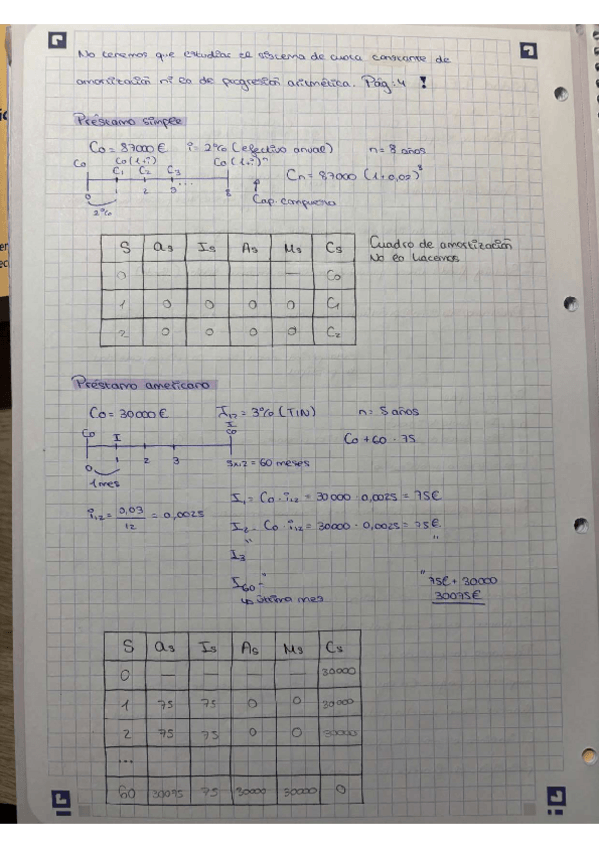 No tenemos que estudiar el sistema de cuota constante de
amortización ni la de progresión aritmética. Pág: 4 !
Préstamo simple
Co = 87000 € i = 2% (efectivo anual) n = 8 años
Co Co(1+i) Co(1+i)ⁿ
C₁ C₂ C₃
0 1 2 3 ... 8
2%
Cap. compuesta
Cn = 87000 (1+0,02)⁸
S as Is As Ms Cs
0 — — — — Co
1 0 0 0 0 C₁
2 0 0 0 0 C₂
Cuadro de amortización
No lo hacemos
Préstamo americano
Co = 30000 € J₁₂ = 3% (TIN) n = 5 años
Co I I
Co
0 1 2 3 5x12 = 60 meses
1 mes
Co + 60 · 75
i₁₂ = 0,03 / 12 = 0,0025
I₁ = Co · i₁₂ = 30000 · 0,0025 = 75€
I₂ = Co · i₁₂ = 30000 · 0,0025 = 75€
" "
I₃
I₆₀ = " " 75€ + 30000
↳ última mes 30075€
S as Is As Ms Cs
0 — — — — 30000
1 75 75 0 0 30000
2 75 75 0 0 30000
...
60 30075 75 30000 30000 0